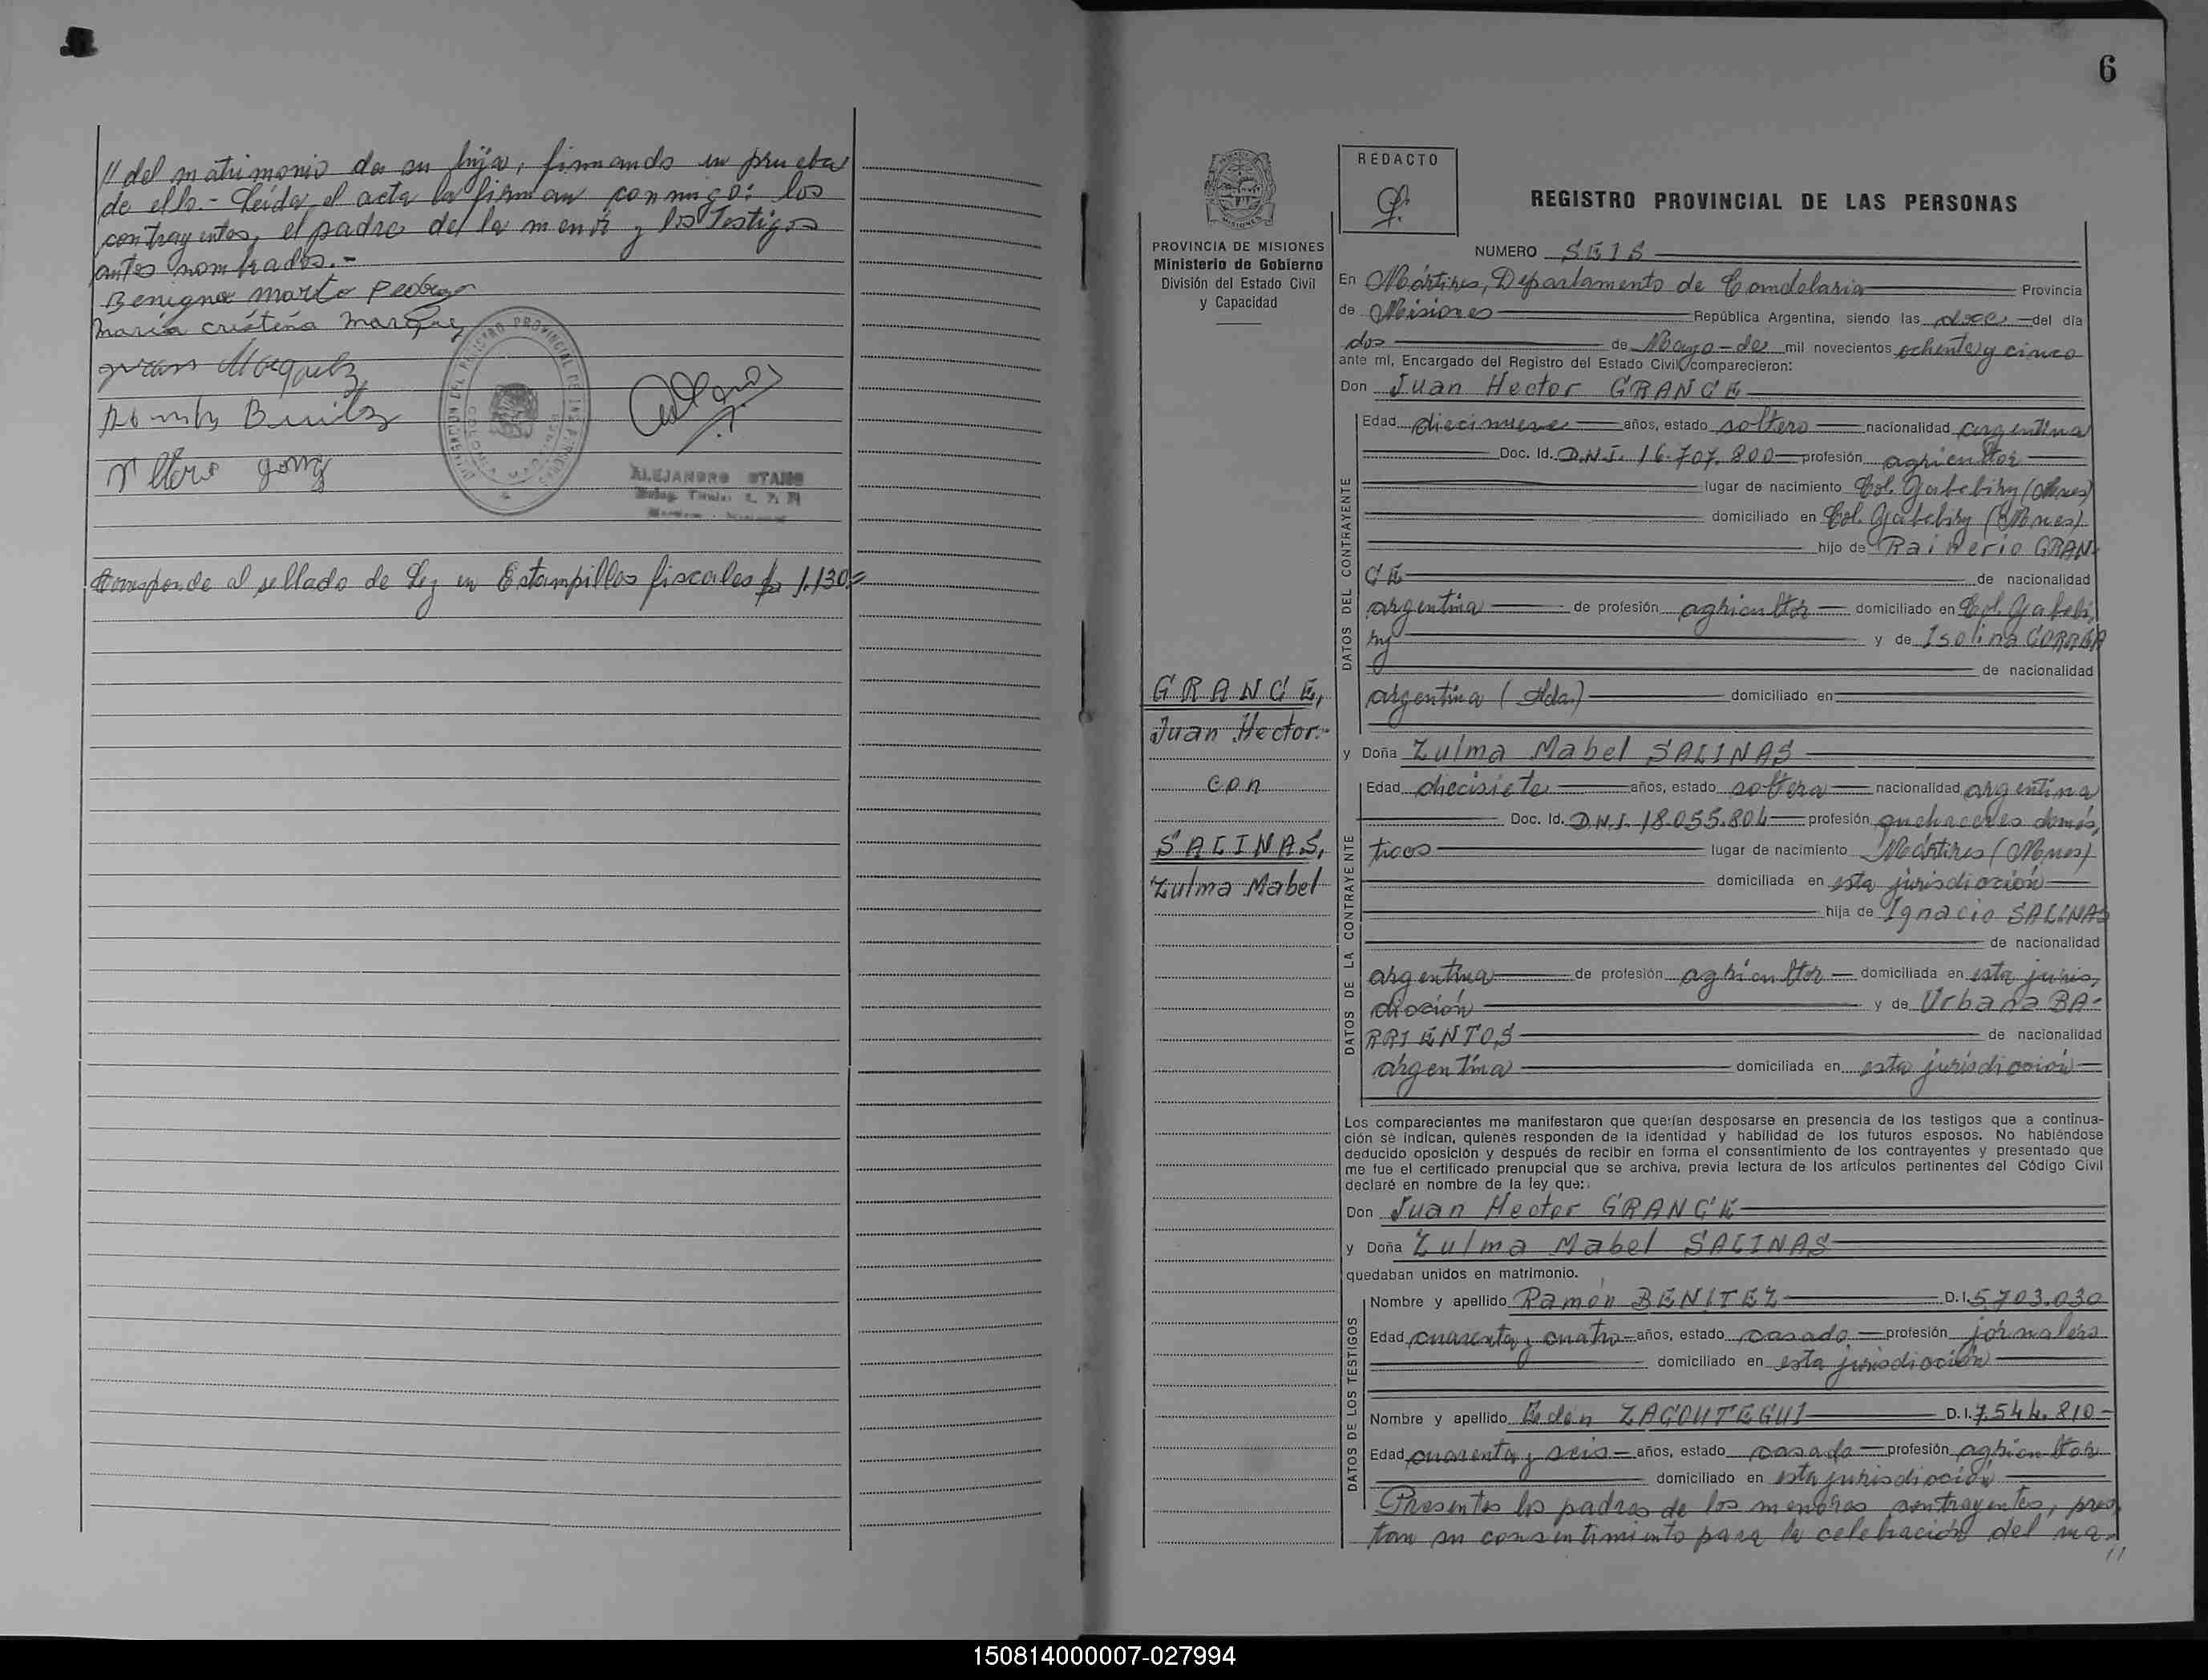 // del matrimonio de su hija, firmando en prueba
de ello.- Leída el acta la firman conmigo: los
contrayentes, el padre de la menor y los testigos
antes nombrados.-
Benigno Marto Pedrozo
Maria Cristina Marquez
Juan Marquez
Benitez
DELEGACION DEL REGISTRO PROVINCIAL DE LAS PERSONAS
ALEJANDRO OTAÑO
Corresponde al sellado de Ley en Estampillas fiscales $a 1.130=
6
PROVINCIA DE MISIONES
Ministerio de Gobierno
División del Estado Civil
y Capacidad
GRANCE,
Juan Hector.-
con
SALINAS,
Zulma Mabel
REDACTO
REGISTRO PROVINCIAL DE LAS PERSONAS
NUMERO SEIS
En Mártires, Departamento de Candelaria Provincia
de Misiones República Argentina, siendo las doce del día
dos de Mayo de mil novecientos ochenta y cinco
ante mí, Encargado del Registro del Estado Civil comparecieron:
Don Juan Hector GRANCE
DATOS DEL CONTRAYENTE
Edad diecinueve años, estado soltero nacionalidad argentina
Doc. Id. D.N.I. 16.707.800 profesión agricultor
lugar de nacimiento Col. Yabebiry (Mnes)
domiciliado en Col. Yabebiry (Mnes)
hijo de Rainerio GRAN-
CE de nacionalidad
argentina de profesión agricultor domiciliado en Col. Yabebi,
ry y de Isolina CORREA
de nacionalidad
argentina (fda.) domiciliado en
y Doña Zulma Mabel SALINAS
DATOS DE LA CONTRAYENTE
Edad diecisiete años, estado soltera nacionalidad argentina
Doc. Id. D.N.I. 18.055.804 profesión quehaceres domés,
ticos lugar de nacimiento Mártires (Mnes)
domiciliada en esta jurisdicción
hija de Ignacio SALINAS
de nacionalidad
argentina de profesión agricultor domiciliada en esta juris,
dicción y de Urbana BA-
RRIENTOS de nacionalidad
argentina domiciliada en esta jurisdicción
Los comparecientes me manifestaron que querían desposarse en presencia de los testigos que a continua-
ción se indican, quienes responden de la identidad y habilidad de los futuros esposos. No habiéndose
deducido oposición y después de recibir en forma el consentimiento de los contrayentes y presentado que
me fue el certificado prenupcial que se archiva, previa lectura de los artículos pertinentes del Código Civil
declaré en nombre de la ley que:
Don Juan Hector GRANCE
y Doña Zulma Mabel SALINAS
quedaban unidos en matrimonio.
DATOS DE LOS TESTIGOS
Nombre y apellido Ramón BENITEZ D.I. 5.703.030
Edad cuarenta y cuatro años, estado casado profesión jornalero
domiciliado en esta jurisdicción
Nombre y apellido Edón ZAGOUTEGUI D.I. 7.544.810-
Edad cuarenta y seis años, estado casado profesión agricultor
domiciliado en esta jurisdicción
Presentes los padres de los menores contrayentes, pres,
tan su consentimiento para la celebración del ma-
//
150814000007-027994